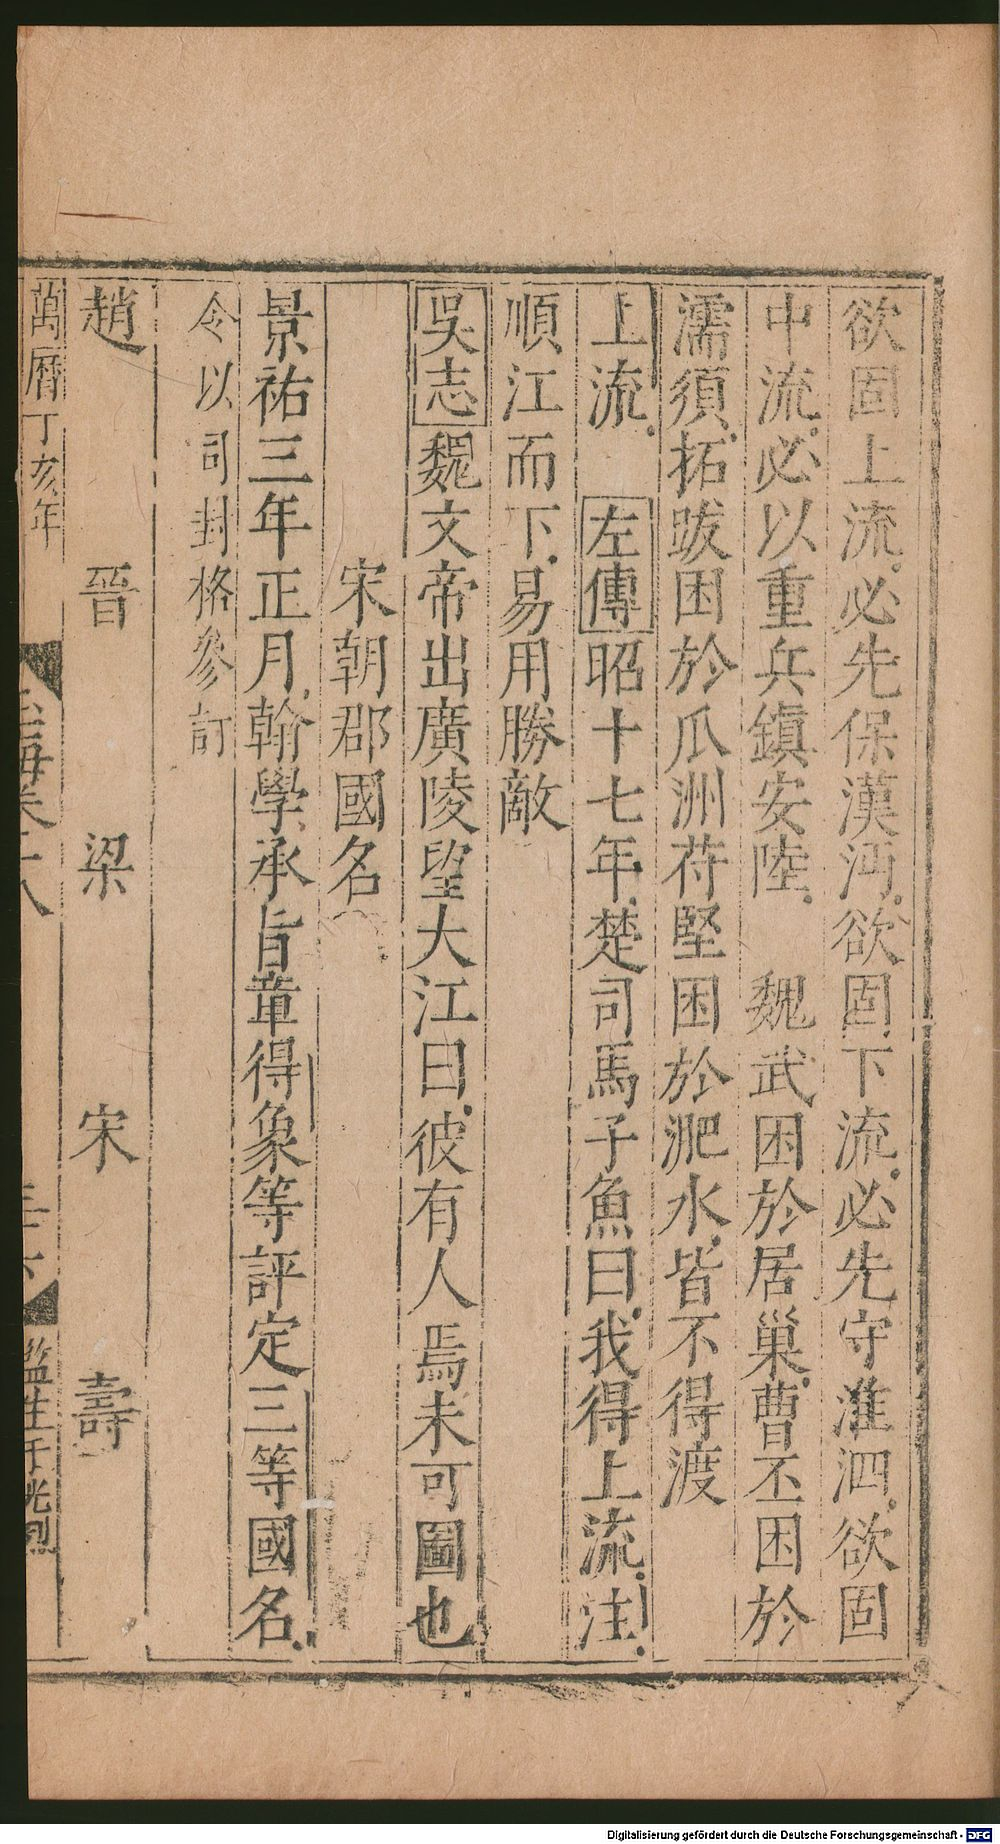 欲固上流必先保漢沔欲固下流必先守淮泗欲固
中流必以重兵鎮安陸　魏武困於居巢曹丕困於
濡須拓跋困於瓜洲苻堅困於淝水皆不得渡
上流　左傳昭十七年楚司馬子魚曰我得上流注
順江而下易用勝敵
吳志魏文帝出廣陵望大江曰彼有人焉未可圖也
宋朝郡國名
景祐三年正月翰學承旨章得象等評定三等國名
令以司封格參訂
趙　晉　梁　宋　壽
萬曆丁亥年
玉海卷十八
監生千光烈
Digitalisierung gefördert durch die Deutsche Forschungsgemeinschaft - DFG